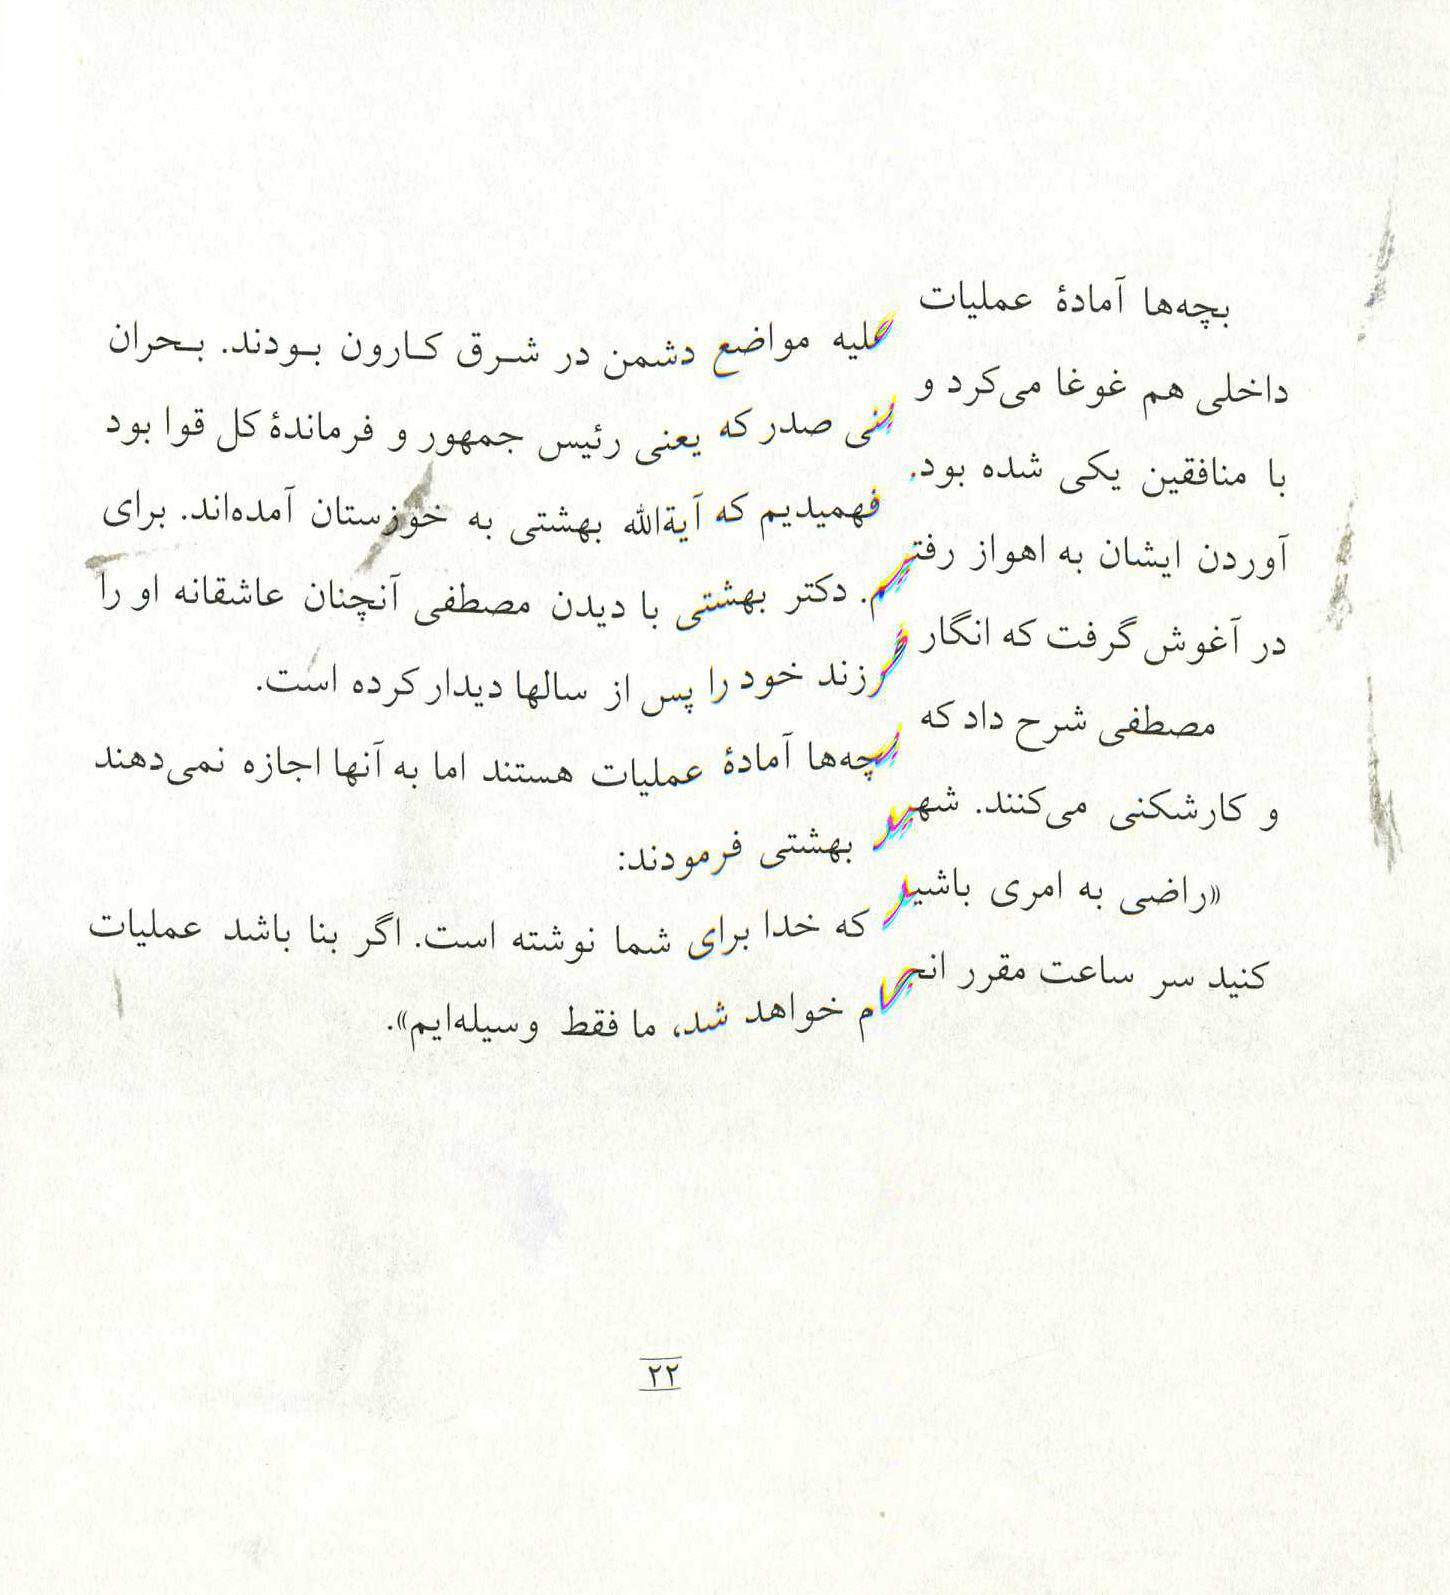 بچه‌ها آمادهٔ عملیات علیه مواضع دشمن در شرق کارون بودند. بحران
داخلی هم غوغا می‌کرد و بنی صدر که یعنی رئیس جمهور و فرماندهٔ کل قوا بود
با منافقین یکی شده بود. فهمیدیم که آیةالله بهشتی به خوزستان آمده‌اند. برای
آوردن ایشان به اهواز رفتیم. دکتر بهشتی با دیدن مصطفی آنچنان عاشقانه او را
در آغوش گرفت که انگار فرزند خود را پس از سالها دیدار کرده است.
مصطفی شرح داد که بچه‌ها آمادهٔ عملیات هستند اما به آنها اجازه نمی‌دهند
و کارشکنی می‌کنند. شهید بهشتی فرمودند:
«راضی به امری باشید که خدا برای شما نوشته است. اگر بنا باشد عملیات
کنید سر ساعت مقرر انجام خواهد شد، ما فقط وسیله‌ایم».
۲۲